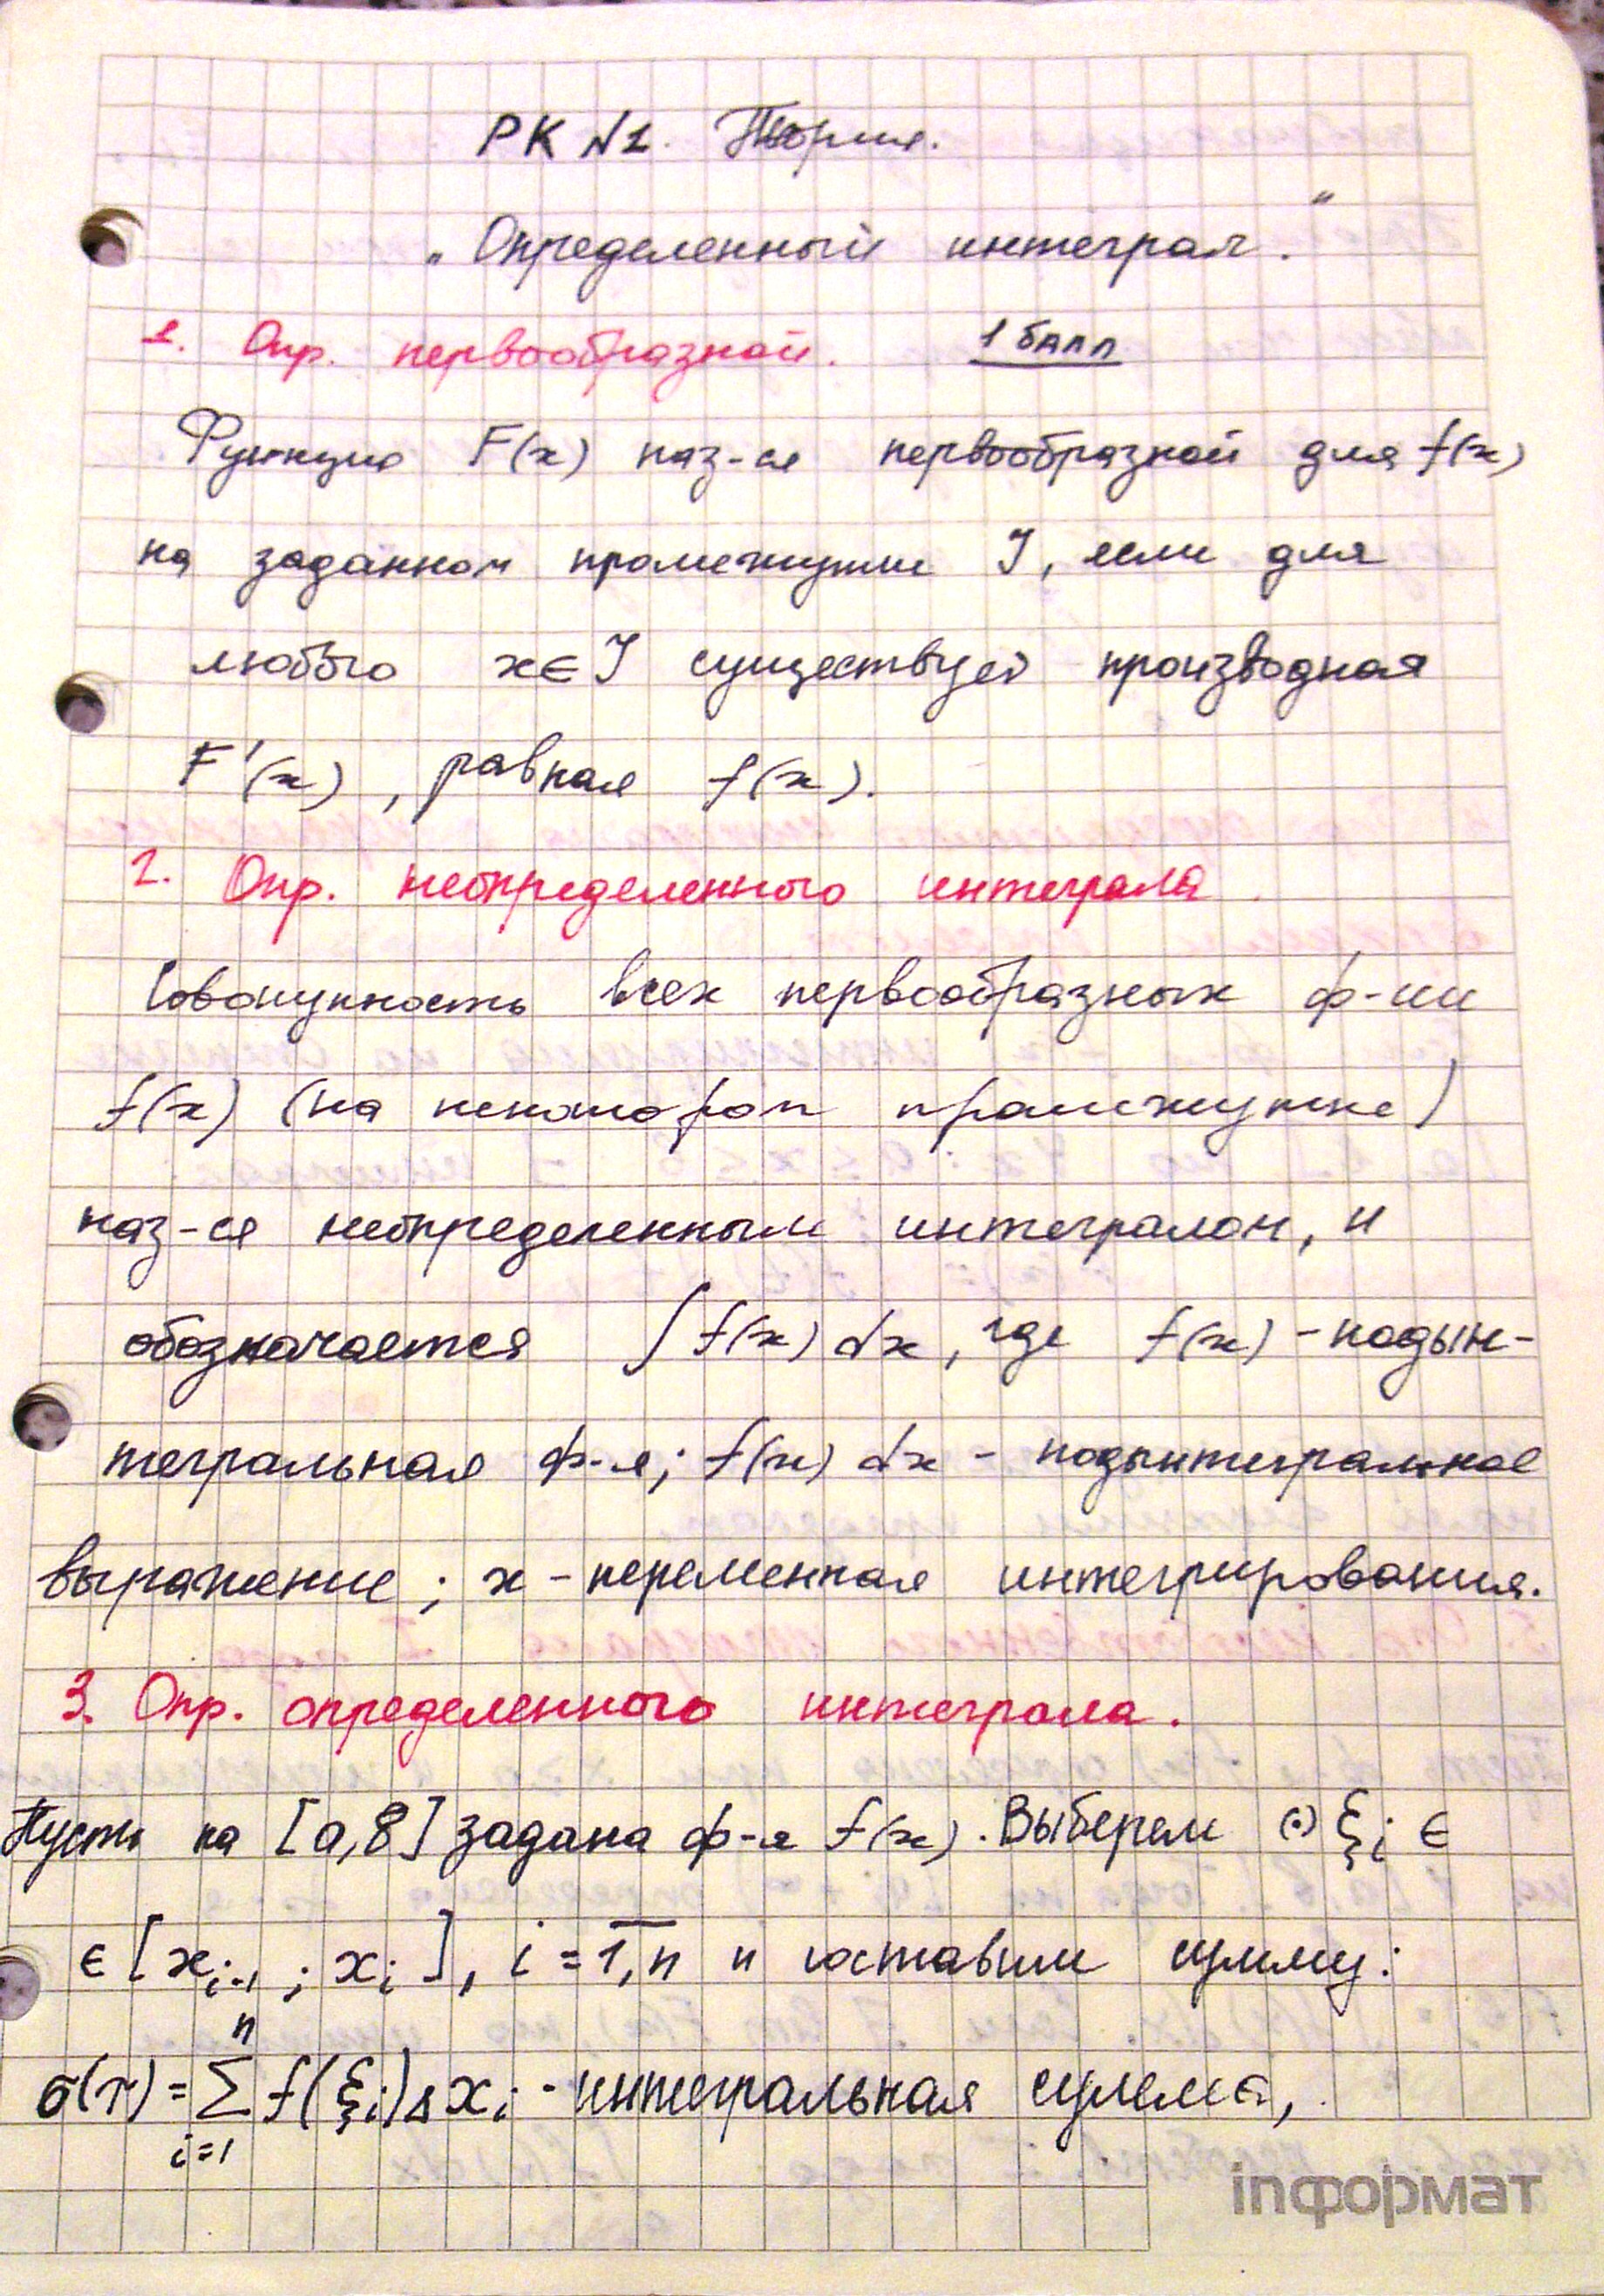 РК №1. Теория.
„Определенный интеграл."
1. Опр. первообразной. 1 балл
Функция F(x) наз-ся первообразной для f(x)
на заданном промежутке J, если для
любого x∈J существует производная
F'(x), равная f(x).
2. Опр. неопределенного интеграла.
Совокупность всех первообразных ф-ии
f(x) (на некотором промежутке)
наз-ся неопределенным интегралом, и
обозначается ∫f(x)dx, где f(x) - подын-
тегральная ф-я; f(x)dx - подынтегральное
выражение; x - переменная интегрирования.
3. Опр. определенного интеграла.
Пусть на [a,b] задана ф-я f(x). Выберем (·) ξᵢ ∈
∈ [xᵢ₋₁; xᵢ], i = 1,n и составим сумму:
n
σ(τ) = Σ f(ξᵢ)Δxᵢ - интегральная сумма,
i=1
inформат